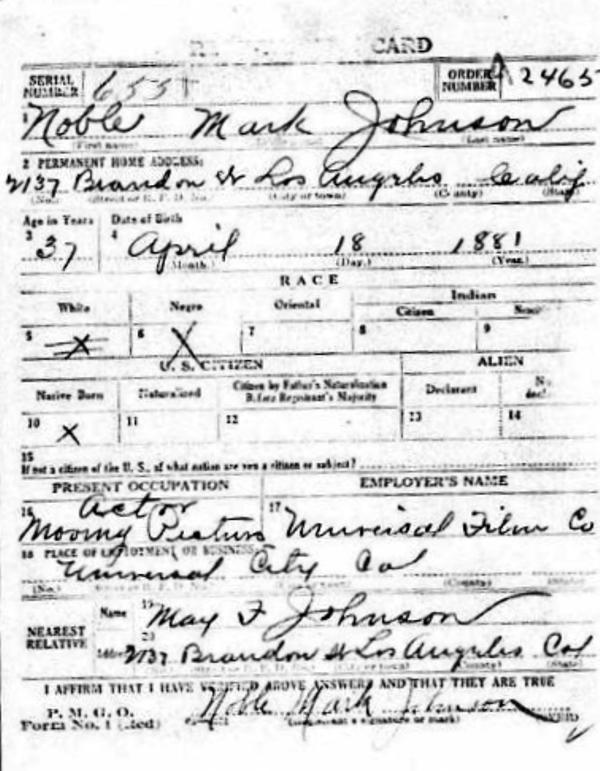 CARD
SERIAL NUMBER 655 ORDER NUMBER 2465
1 Noble Mark Johnson
(First name) (Last name)
2 PERMANENT HOME ADDRESS:
2137 Brandon St Los Angeles Calif
(No.) (Street or R. F. D. No.) (City or town) (County) (State)
Age in Years Date of Birth
3 37 4 April 18 1881
(Month.) (Day.) (Year.)
RACE
White Negro Oriental Indian
Citizen
5 X 6 X 7 8 9
U. S. CITIZEN ALIEN
Native Born Naturalized Citizen by Father's Naturalization Before Registrant's Majority Declarant
10 X 11 12 13 14
15
If not a citizen of the U. S., of what nation are you a citizen or subject?
PRESENT OCCUPATION EMPLOYER'S NAME
16 Actor
Moving Picture 17 Universal Film Co
18 PLACE OF EMPLOYMENT OR BUSINESS:
Universal City Cal
(No.) (County) (State)
NEAREST RELATIVE Name 19 May F Johnson
20
2137 Brandon St Los Angeles Cal
(No.) (Street or R. F. D. No.) (City or town) (County) (State)
I AFFIRM THAT I HAVE VERIFIED ABOVE ANSWERS AND THAT THEY ARE TRUE
P. M. G. O.
Form No. 1 (Red) Noble Mark Johnson
(Registrant's signature or mark)